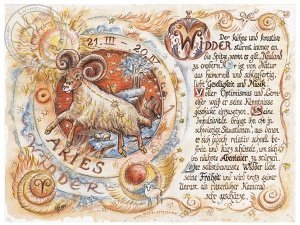 21. III - 20. IV
ARIES
Widder
Der kühne und kreative
WIDDER stürmt immer an
die Spitze, wenn es gilt, Neuland
zu erobern. Er ist von Natur
aus humorvoll und schlagfertig,
liebt Geselligkeit und Musik.
Voller Optimismus und Lern-
eifer weiß er seine Kenntnisse
geschickt einzusetzen. Seine
Impulsivität bringt ihn oft in
schwierige Situationen, aus denen
er sich jedoch relativ schnell be-
freit und kurz schüttelt, um sich
ins nächste Abenteuer zu stürzen.
Der selbstbewusste Widder liebt
seine Freiheit und wird trotz seiner
Unrast als ritterlicher Kamerad
sehr geschätzt.